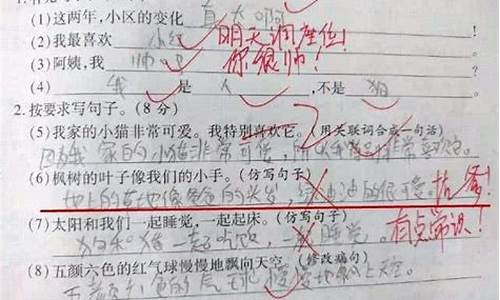 (1)这两年,小区的变化 真大啊
(2)我最喜欢 小红 明天调座位!
(3)阿姨,我 帅吧 你很帅!
(4) 我 是 人 ,不是 狗
2.按要求写句子。(8分)
(5)我家的小猫非常可爱。我特别喜欢它。(用关联词合成一句话)
因为我家的小猫非常可爱,所以我非常喜欢它。
(6)枫树的叶子像我们的小手。(仿写句子)
地上的草地像爸爸的头发,绿油油的很可爱。抗争!
(7)太阳和我们一起睡觉,一起起床。(仿写句子)
狗和猪一起吃饭,一起睡觉。有点常识!
(8)五颜六色的红气球慢慢地飘向天空。(修改病句)
五颜六色的气球慢慢地飘上天空。